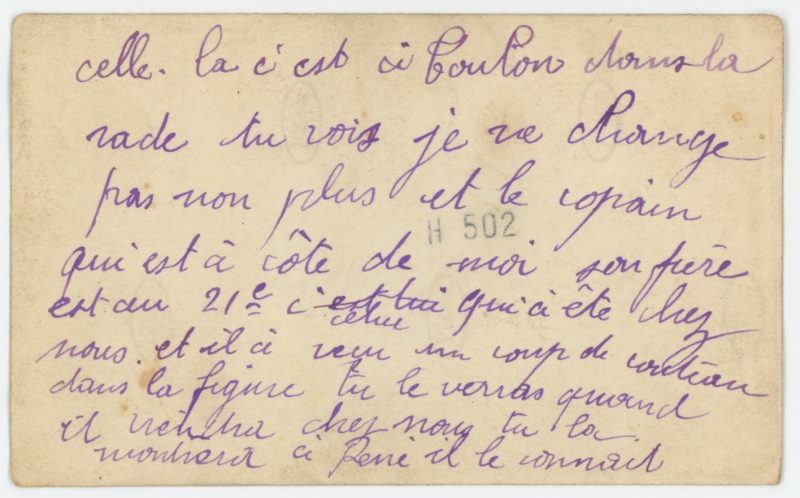 celle. la c'est à Toulon dans la
rade tu vois je ne change
pas non plus et le copain
H 502
qui est à côte de moi son frère
est au 21e c'est lui qui à ête chez
celui
nous. et il à recu un coup de couteau
dans la figure tu le verras quand
il viendra chez nous tu la
montrera à René il le connait